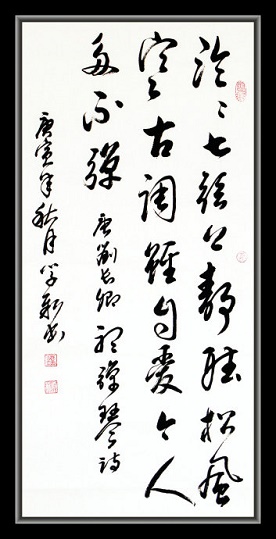 泠泠七弦上靜聽松風
寒古調雖自愛今人
多不彈 唐劉長卿聽彈琴詩
庚寅年秋月學新書